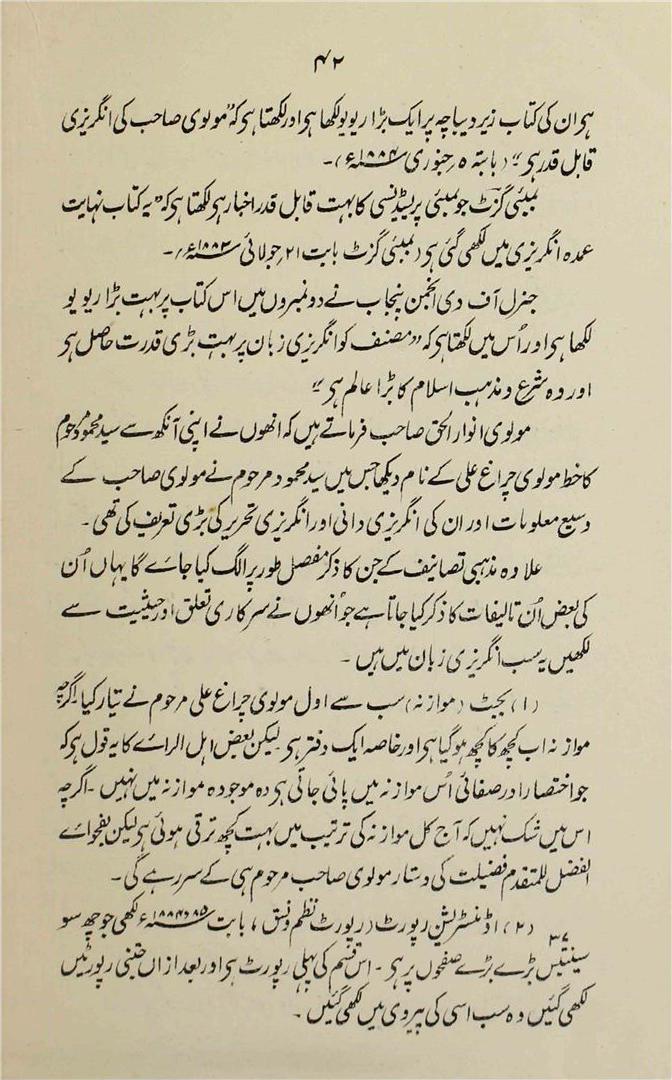 ۴۲
ہر ان کی کتاب زیر دیباچہ پر ایک بڑا ریویو لکھا ہر اور لکھتا ہر کہ "مولوی صاحب کی انگریزی
قابل قدر ہر" (بابتہ ۵ر جنوری ۱۸۸۴ء)۔
بمبئی گزٹ جو بمبئی پریسیڈنسی کا بہت قابل قدر اخبار ہر لکھتا ہر کہ "یہ کتاب نہایت
عمدہ انگریزی میں لکھی گئی ہر (بمبئی گزٹ بابت ۲۱ر جولائی ۱۸۸۳ء)۔
جنرل آف دی انجمن پنجاب نے دو نمبروں میں اس کتاب پر بہت بڑا ریویو
لکھا ہر اور اُس میں لکھتا ہر کہ "مصنف کو انگریزی زبان پر بہت بڑی قدرت حاصل ہر
اور وہ شرع و مذہب اسلام کا بڑا عالم ہر"
مولوی انوار الحق صاحب فرماتے ہیں کہ انھوں نے اپنی آنکھ سے سید محمود مرحوم
کا خط مولوی چراغ علی کے نام دیکھا جس میں سید محمود مرحوم نے مولوی صاحب کے
وسیع معلومات اور ان کی انگریزی دانی اور انگریزی تحریر کی بڑی تعریف کی تھی۔
علاوہ مذہبی تصانیف کے جن کا ذکر مفصل طور پر الگ کیا جاے گا یہاں اُن
کی بعض اُن تالیفات کا ذکر کیا جاتا ہے جو اُنھوں نے سرکاری تعلق اور حیثیت سے
لکھیں یہ سب انگریزی زبان میں ہیں۔
(۱) بجٹ (موازنہ) سب سے اول مولوی چراغ علی مرحوم نے تیار کیا اگرچہ
موازنہ اب کچھ کا کچھ ہو گیا ہر اور خاصہ ایک دفتر ہر لیکن بعض اہل الراے کا یہ قول ہر کہ
جو اختصار اور صفائی اُس موازنہ میں پائی جاتی ہر وہ موجودہ موازنہ میں نہیں۔ اگرچہ
اس میں شک نہیں کہ آج کل موازنہ کی ترتیب میں بہت کچھ ترقی ہوئی ہر لیکن بفحواے
الفضل للمتقدم فضیلت کی دستار مولوی صاحب مرحوم ہی کے سر رہے گی۔
(۲) اڈمنسٹریشن رپورٹ (رپورٹ نظم و نسق)، بابت ۸۵و۱۸۸۴ء لکھی جو چھ سو
۳۷
سینتیس بڑے بڑے صفحوں پر ہر۔ اس قسم کی پہلی رپورٹ ہر اور بعد ازاں جتنی رپورٹیں
لکھی گئیں وہ سب اسی کی پیروی میں لکھی گئیں۔